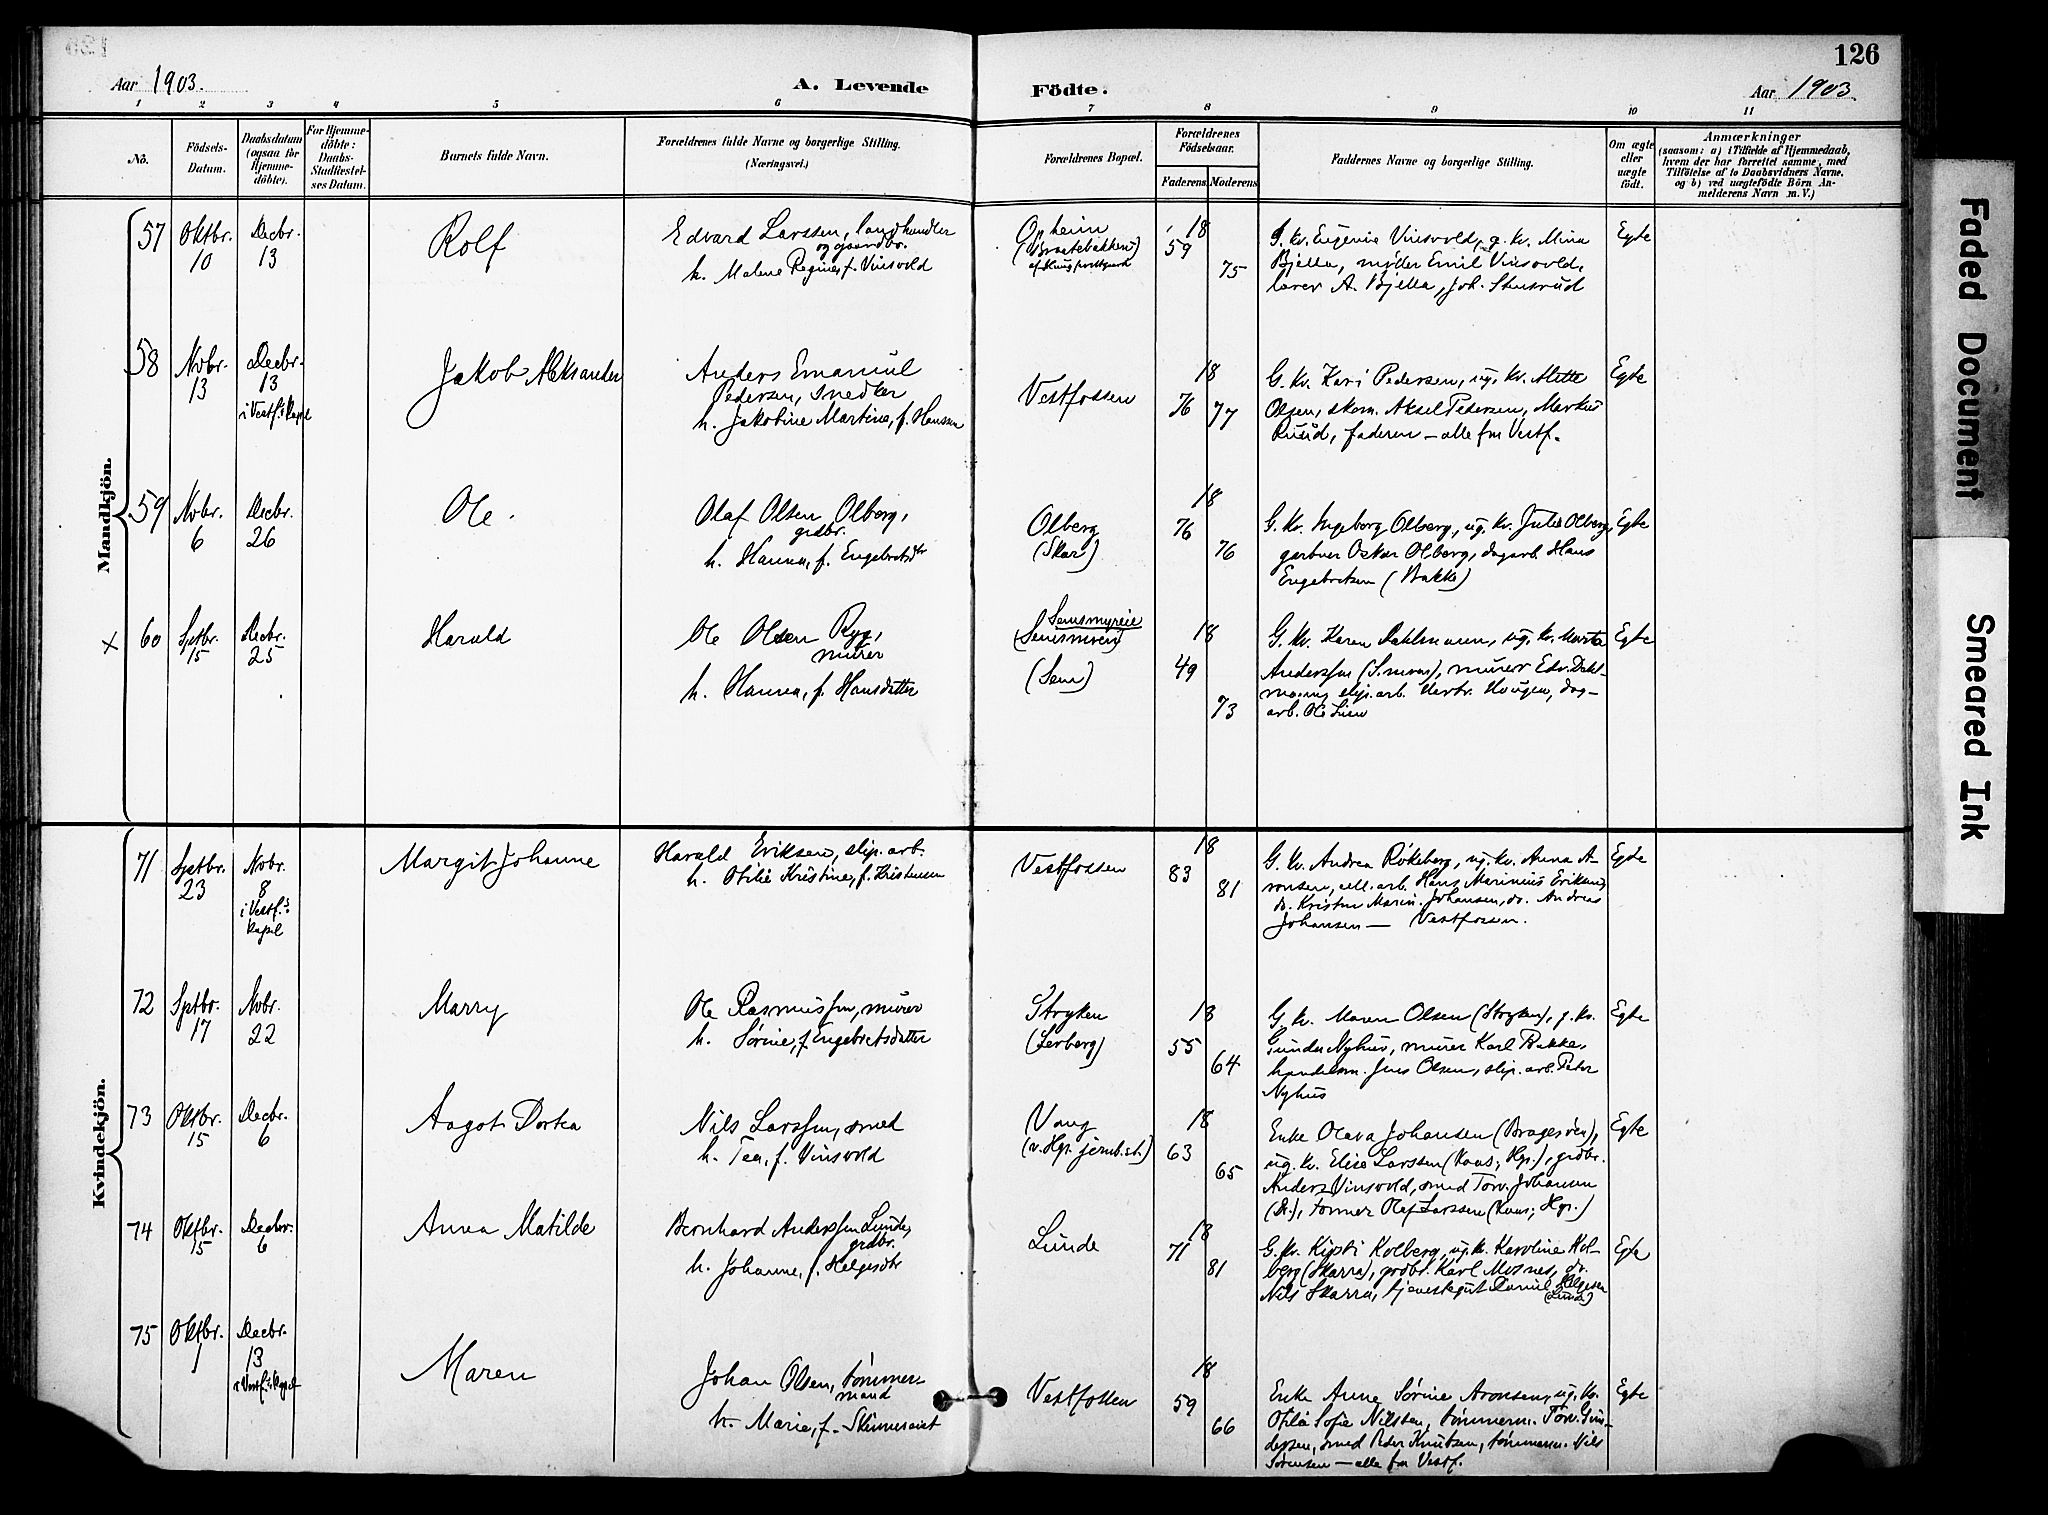 126
Aar 1903.
A. Levende Födte.
Aar 1903.
1 2 3 4 5 6 7 8 9 10 11
No.
Födsels-
Datum.
Daabsdatum
(ogsaa for
Hjemme-
döbte).
For Hjemme-
döbte:
Daabs-
Stadfæstel-
ses Datum.
Barnets fulde Navn.
Forældrenes fulde Navne og borgerlige Stilling.
(Næringsvei.)
Forældrenes Bopæl.
Forældrenes
Födselsaar.
Faderens.
Moderens.
Faddernes Navne og borgerlige Stilling.
Om ægte
eller
uægte
født.
Anmærkninger
(saasom: a) i Tilfælde af Hjemmedaab,
hvem der har forrettet samme, med
Tilføielse af to Daabsvidners Navne,
og b) ved uægtefödte Börn An-
melderens Navn m. V.)
Mandkjön.
57
Oktbr.
10
Decbr.
13
Rolf
Edvard Larssen, landhandler
og gaardbr.
h. Malene Regine, f. Vinsvold
Opheim
18
59
75
G. kv. Eugenie Vinsvold, g. kv. Mina
Bjella, møller Emil Vinsvold,
lærer A. Bjella, Joh.
Egte
58
Novbr.
13
Decbr.
13
i Vestf.s kapel
Jakob Aleksander
Anders Emanuel
Pedersen, snedker
h. Jakobine Martine, f. Hanssen
Vestfossen
18
76
77
G. kv. Kari Pedersen, ug. kv. Alette
Olsen, skom. Aksel Pedersen, Markus
Ruud, faderen — alle fra Vestf.
Egte
59
Novbr.
6
Decbr.
26
Ole.
Olaf Olsen Olberg,
grdbr.
h. Hanna, f. Engebretsdtr
Olberg
(Skar)
18
76
76
G. kv. Ingeborg Olberg, ug. kv. Julie Olberg,
gartner Oskar Olberg, dagarb. Hans
Engebretsen (Bakke)
Egte
X 60
Sptbr.
15
Decbr.
25
Harald
Ole Olsen Ryg,
murer
h. Hanna, f. Hansdatter
Semsmyreie
(Sem)
18
49
73
G. kv. Karen Dahlmann, ug. kv. Marta
Anderssen, murer Edv. Dahl-
mann, slip. arb. Herbr. Haugen, dag-
arb. Ole Lien
Egte
Kvindekjön.
71
Sptbr.
23
Novbr.
8
i Vestf.s
kapel
Margit Johanne
Harald Eriksen, slip. arb.
h. Otilie Kristine, f. Kristensen
Vestfossen
18
83
81
G. kv. Andrea Røkeberg, ug. kv. Anna A-
ronsen, cell. arb. Hans Marinius Eriksen,
do. Kristen Marin. Johansen, do. Andreas
Johansen — Vestfossen.
Egte
72
Sptbr.
17
Novbr.
22
Marry
Ole Rasmussen, murer
h. Sørine, f. Engebretsdatter
Stryken
(Lerberg)
18
55
64
G. kv. Maren Olsen (Stryken), g. kv.
Gunda Nyhus, murer Karl Bakke,
handelsm. Jens Olsen, slip. arb. Peter
Nyhus
Egte
73
Oktbr.
15
Decbr.
6
Aagot Dortea
Nils Larssen, smed
h. Tea, f. Vinsvold
Vang
(v. Hgs. jernb.st.)
18
63
65
Enke Olava Johansen (Bragerøen),
ug. kv. Elise Larssen (Kaas, Hgs.), grdbr.
Anders Vinsvold, smed Torv. Johansen
(Dr.), tømmer Olaf Larssen (Kaas, Hgs.)
Egte
74
Oktbr.
15
Decbr.
6
Anna Matilde
Bernhard Anderssen Lunde,
grdbr.
h. Johanne, f. Helgesdtr
Lunde
18
71
81
G. kv. Kirsti Kolberg, ug. kv. Karoline Kol-
berg (Skarra), grdbr. Karl Mosnes, do.
Nils Skarra, tjenestegut Daniel Helgesen
(Lunde)
Egte
75
Oktbr.
1
Decbr.
13
i Vestf.s kapel
Maren
Johan Olsen, tømmer-
mand
h. Marie, f.
Vestfossen
18
59
66
Enke Anne Sørine Aronsen, ug. kv.
Otilie Sofie Nilssen, tømmerm. Torv. Gun-
dersen, smed Peder Knutsen, tømmerm. Nils
Sørensen — alle fra Vestf.
Egte
Faded Document
Smeared Ink